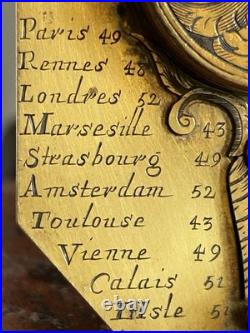 Paris 49
Rennes 48
Londres 52
Marseille 43
Strasbourg 49
Amsterdam 52
Toulouse 43
Vienne 49
Calais 51
Lisle 51